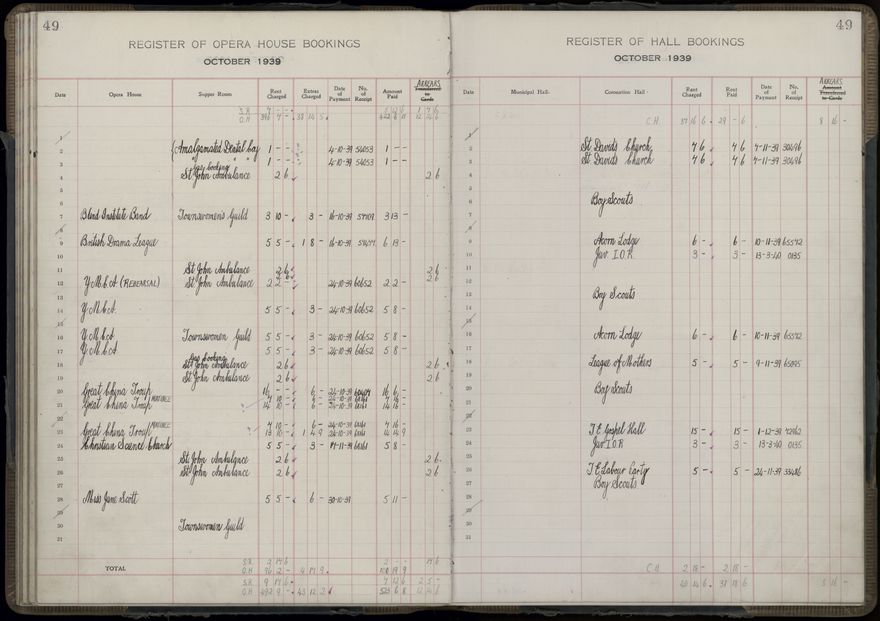 49
REGISTER OF OPERA HOUSE BOOKINGS
OCTOBER 1939
Date Opera House Supper Room Rent Charged Extras Charged Date of Payment No. of Receipt Amount Paid ARREARS Transferred to Cards
S.R.
O.H.
1
2 Amalgamated Dental Coy 1 - - 4-10-39 54053 1 - -
3 " " " 1 - - 4-10-39 54053 1 - -
4 St John Ambulance 2 6 2 6
5
6
7 Blind Institute Band Townswomens Guild 3 10 - 3 - 16-10-39 3 13 -
8
9 British Drama League 5 5 - 1 8 - 16-10-39 6 13 -
10
11 St John Ambulance 2 6 2 6
12 Y.M.C.A (REHEARSAL) St John Ambulance 2 2 - 24-10-39 60652 2 2 - 2 6
13
14 Y.M.C.A. 5 5 - 3 - 24-10-39 60652 5 8 -
15
16 Y.M.C.A Townswomen Guild 5 5 - 3 - 24-10-39 60652 5 8 -
17 Y.M.C.A 5 5 - 3 - 24-10-39 60652 5 8 -
18 St John Ambulance 2 6 2 6
19 St John Ambulance 2 6 2 6
20 Great China Troup 16 - - 6 - 16 6 -
21 Great China Troup MATINEE 14 10 - 6 - 14 16 -
22
23 Great China Troup MATINEE 13 10 - 1 4 9 24-10-39 14 14 9
24 Christian Science Church 5 5 - 3 - 5 8 -
25 St John Ambulance 2 6 2 6
26 St John Ambulance 2 6 2 6
27
28 Miss Jane Scott 5 5 - 6 - 30-10-39 5 11 -
29
30 Townswomen Guild
31
TOTAL
S.R. 2 17 6 2 - - 17 6
O.H. 96 2 - 4 17 9 100 19 9
S.R. 9 17 6 7 12 6 2 5 -
O.H. 492 9 - 43 12 2
49
REGISTER OF HALL BOOKINGS
OCTOBER 1939
Date Municipal Hall Coronation Hall Rent Charged Rent Paid Date of Payment No. of Receipt ARREARS Amount Transferred to Cards
C.H. 37 16 6 29 - 6 8 16 -
1
2 St Davids Church 7 6 7 6 7-11-39 30696
3 St Davids Church 7 6 7 6 7-11-39 30696
4
5
6 Boy Scouts
7
8
9 Acorn Lodge 6 - 6 - 10-11-39 65572
10 Juv I.O.R. 3 - 3 - 13-3-40 0135
11
12
13 Boy Scouts
14
15
16 Acorn Lodge 6 - 6 - 10-11-39 65572
17
18 League of Mothers 5 - 5 - 9-11-39 65095
19
20 Boy Scouts
21
22
23 T.E. Gospel Hall 15 - 15 - 1-12-39 72962
24 Juv I.O.R 3 - 3 - 13-3-40 0135
25
26 T.E. Labour Party 5 - 5 - 24-11-39 33486
27 Boy Scouts
28
29
30
31
C.H. 2 18 - 2 18 -
40 14 6 31 18 6 8 16 -